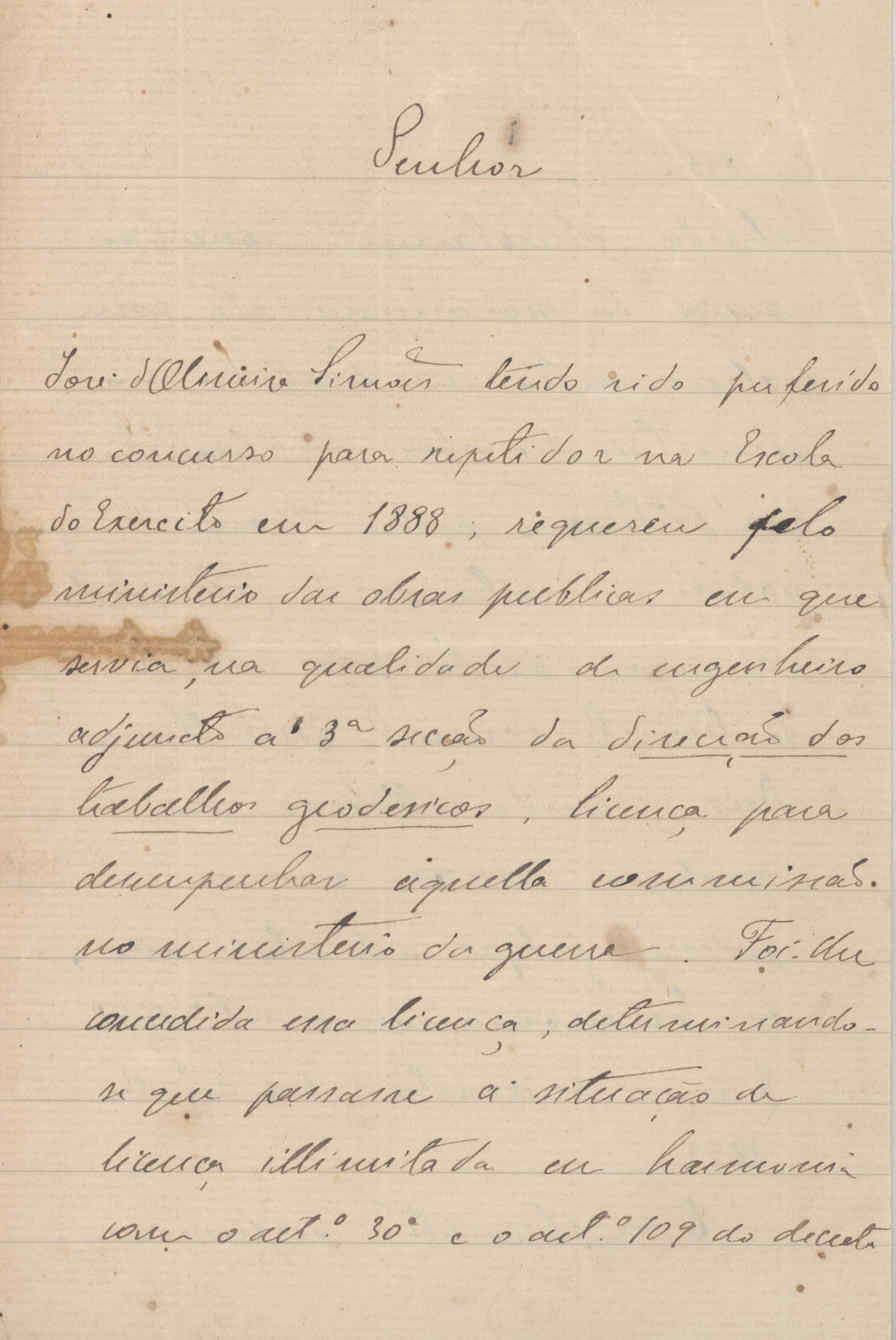 Senhor
José d'Oliveira Simões tendo sido preferido
no concurso para repetidor na Escola
do Exercito em 1888, requereu pelo
ministerio das obras publicas em que
servia, na qualidade de engenheiro
adjuncto á 3ª secção da direcção dos
trabalhos geodesicos, licença para
desempenhar aquella commissão
no ministerio da guerra. Foi-lhe
concedida essa licença, determinando-
se que passasse á situação de
licença illimitada em harmonia
com o art.º 30º e o art.º 109 do decreto